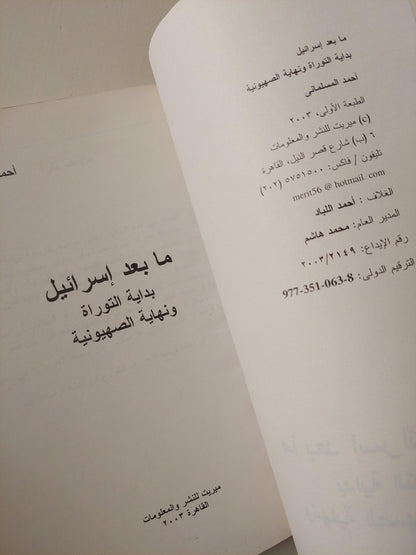 ما بعد إسرائيل
بداية التوراة ونهاية الصهيونية
أحمد المسلمانى
الطبعة الأولى، ٢٠٠٣
(c) ميريت للنشر والمعلومات
٦ (ب) شارع قصر النيل، القاهرة
تليفون / فاكس: ٥٧٥١٥٠٠ (٢٠٢)
merit56 @ hotmail. com
الغلاف : أحمد اللباد
المدير العام: محمد هاشم
رقم الإيداع: ٢٠٠٣/٢١٤٩
الترقيم الدولى: 977-351-063-8
ما بعد إسرائيل
بداية التوراة
ونهاية الصهيونية
ميريت للنشر والمعلومات
القاهرة ٢٠٠٣